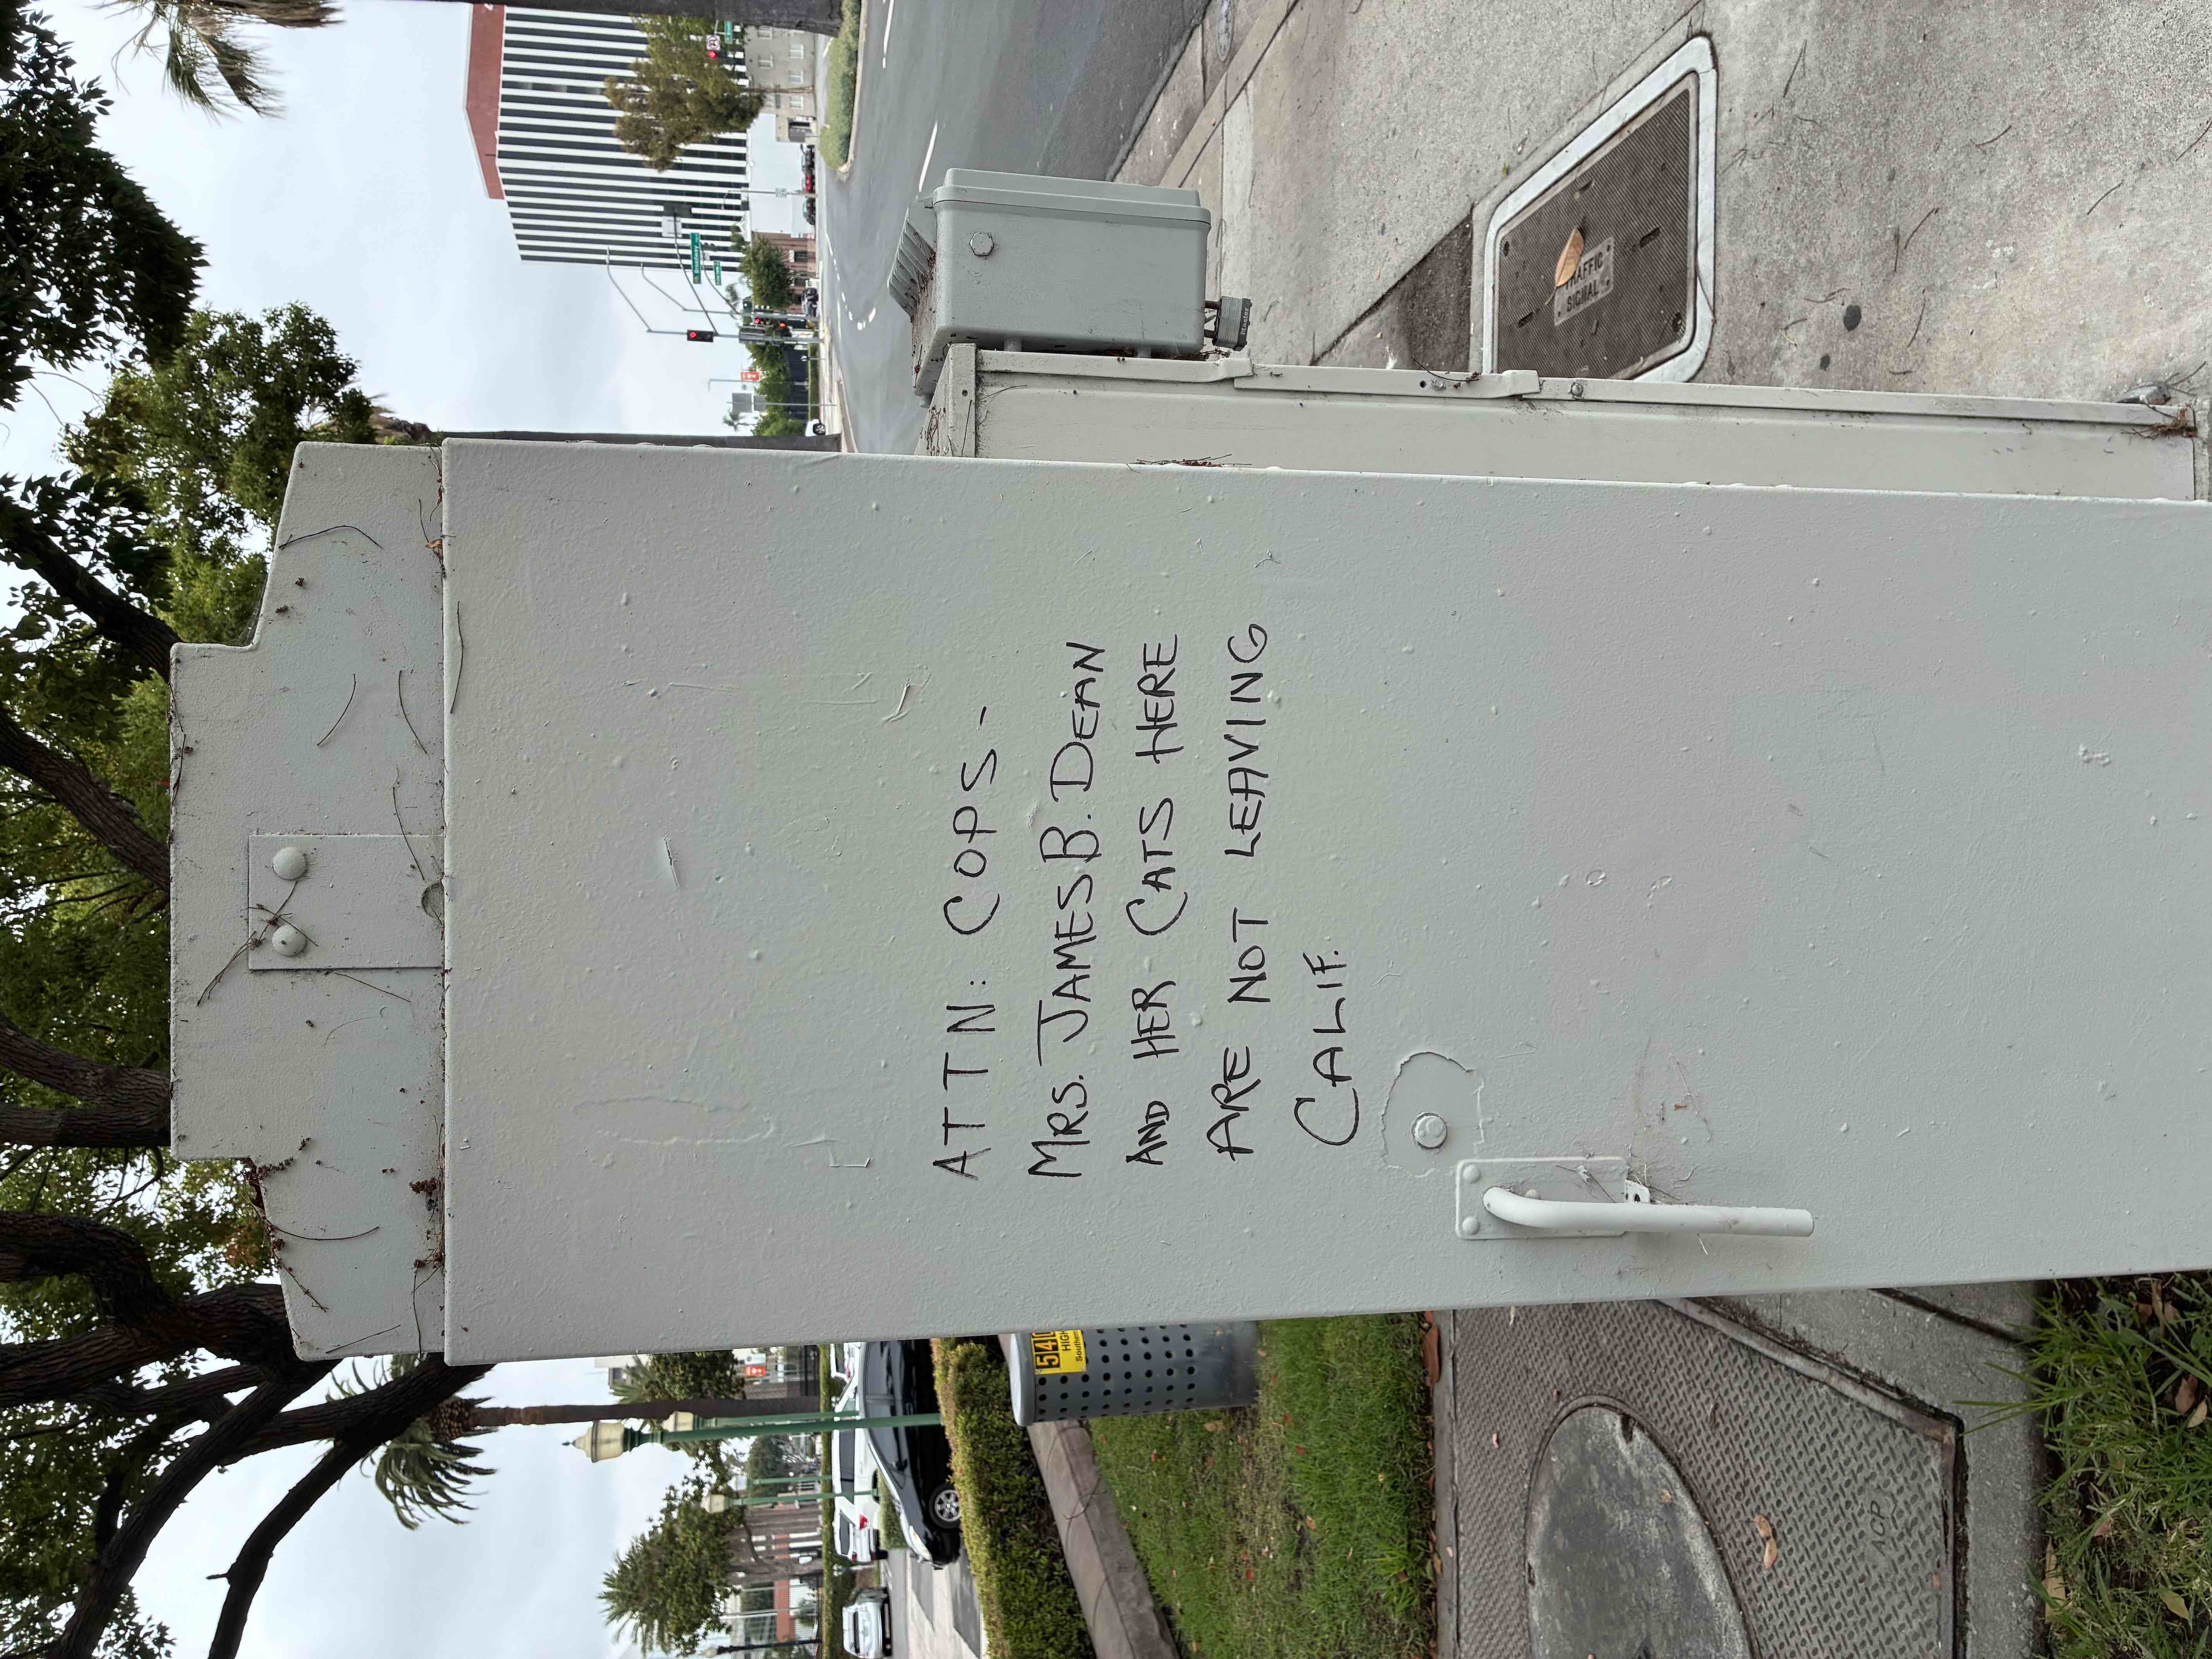 ATTN: COPS-
MRS. JAMES B. DEAN
AND HER CATS HERE
ARE NOT LEAVING
CALIF.
TRAFFIC
SIGNAL
Master
540
HIGH
Southern
ACP